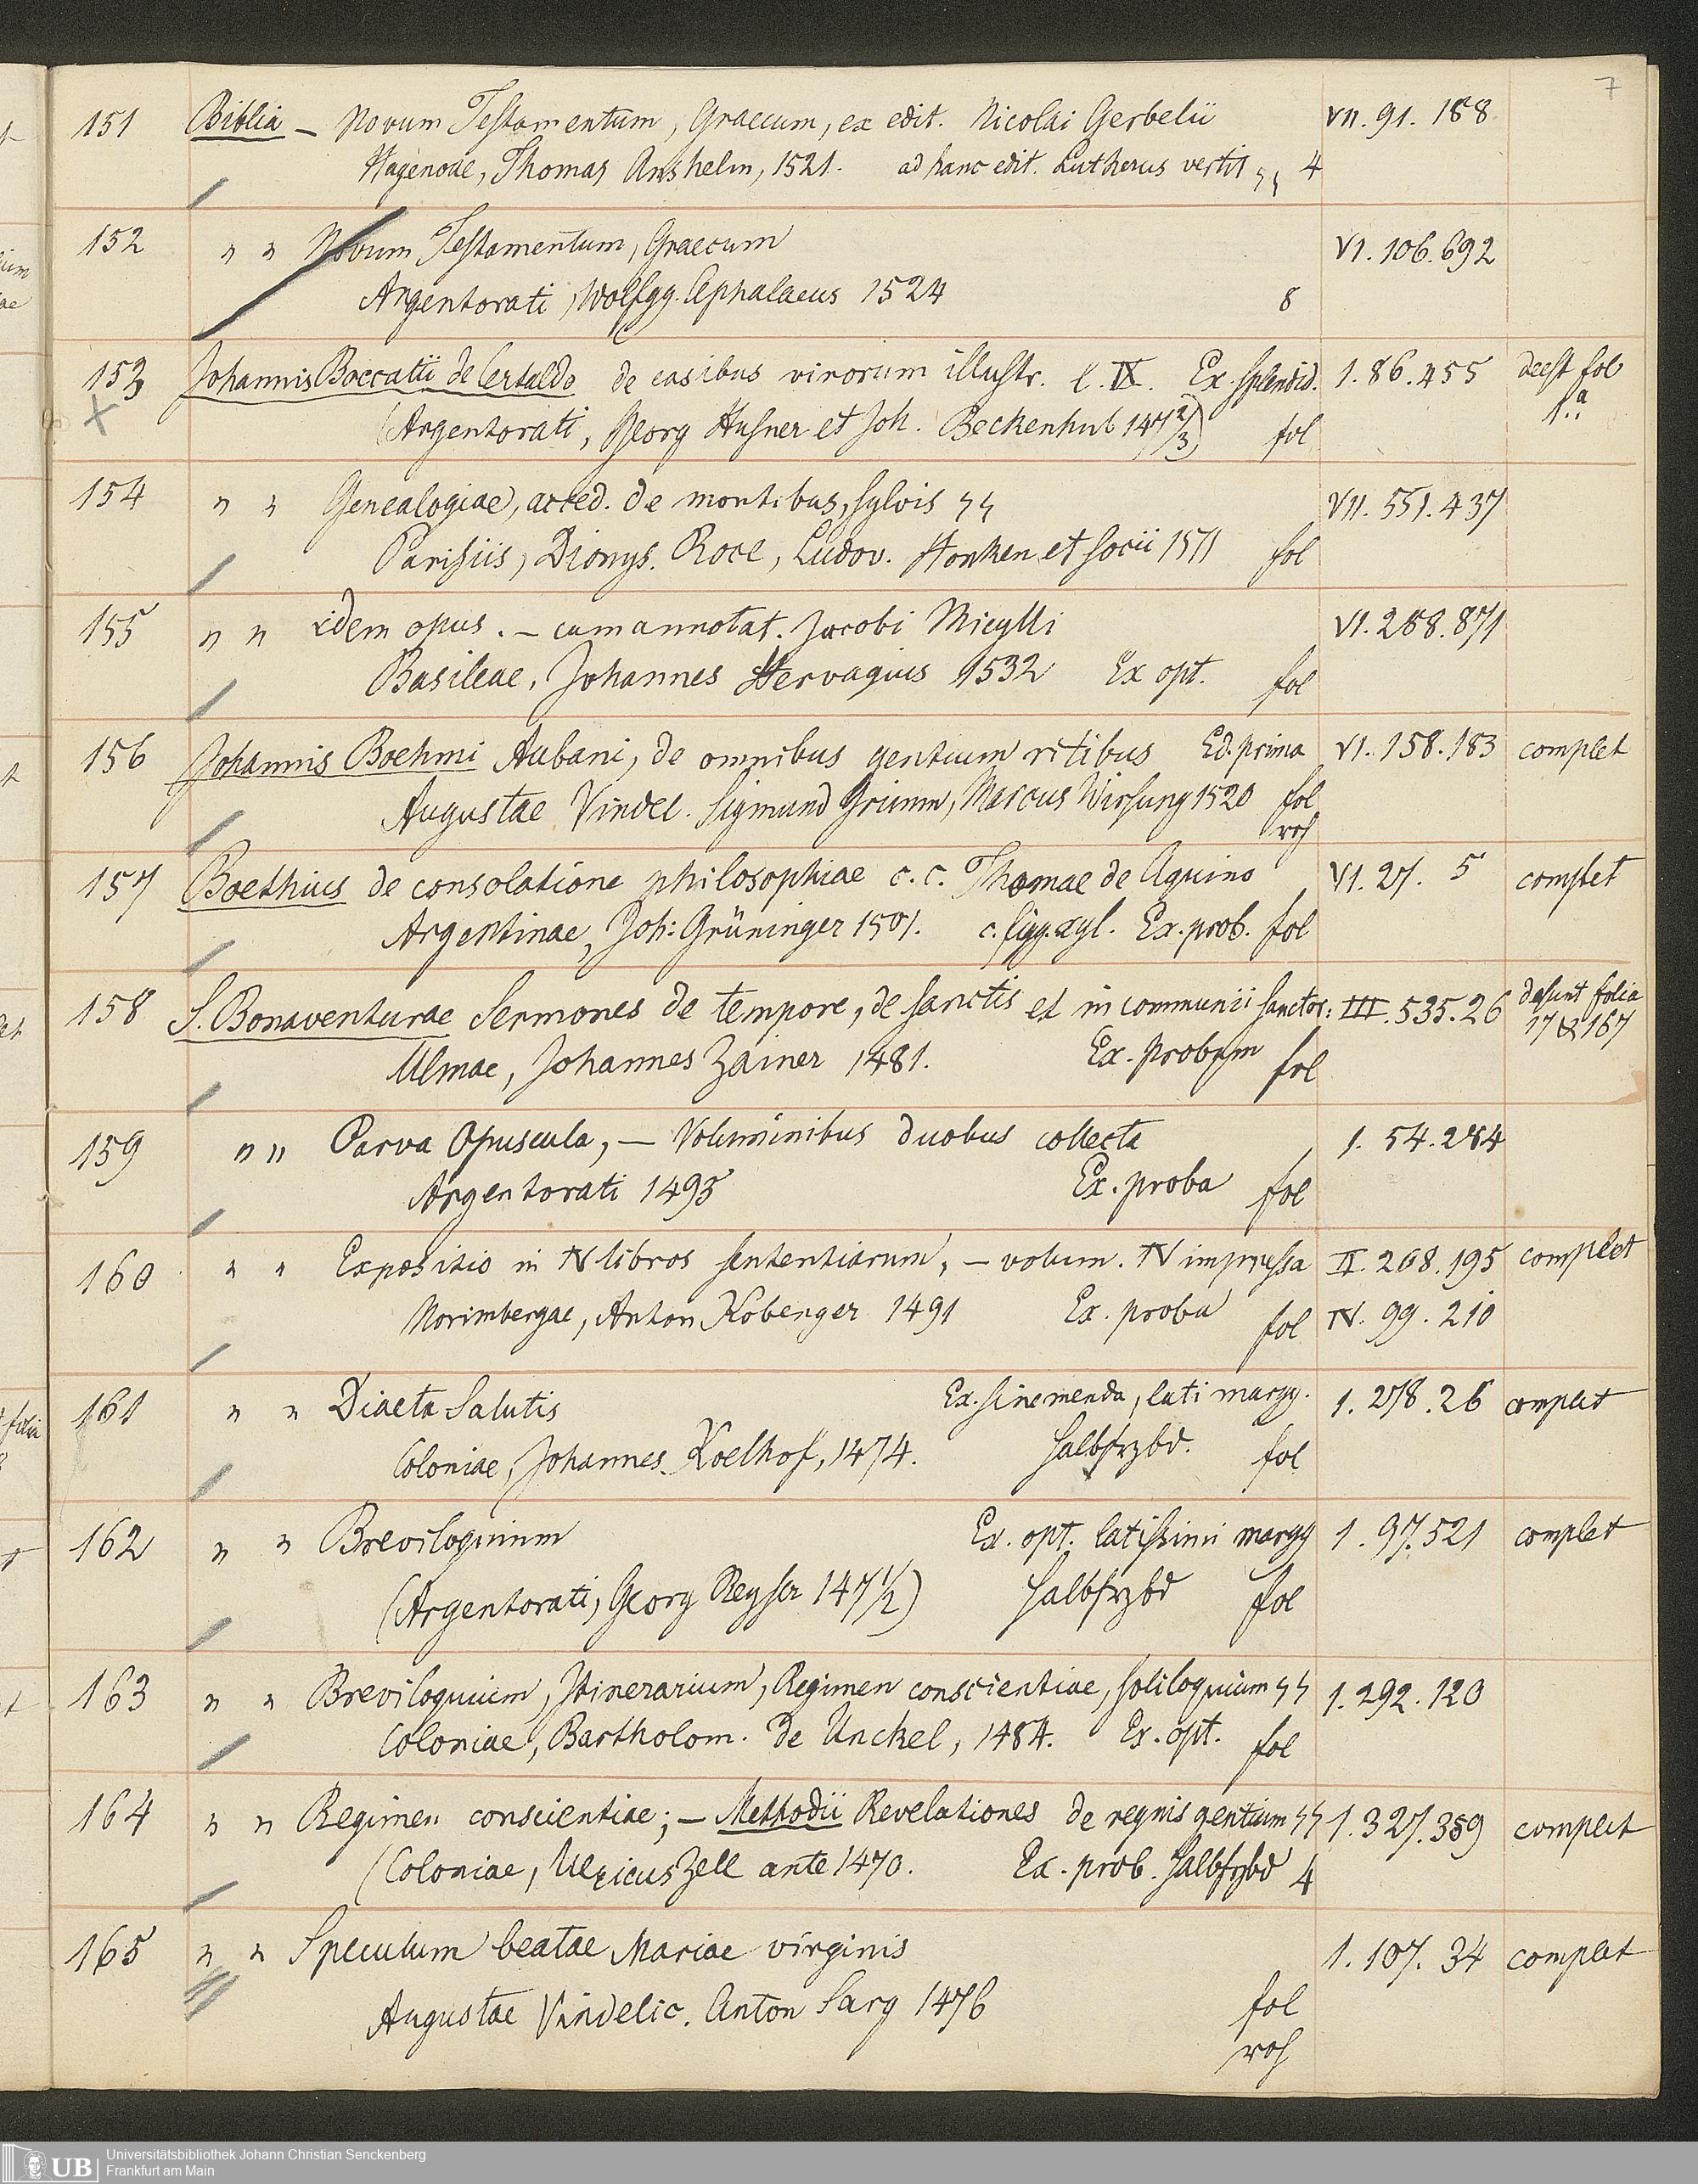 7
151 Biblia – Novum Testamentum, Graecum, ex edit. Nicolai Gerbelii VII. 91. 188
Hagenoae, Thomas Anshelm, 1521. ad hanc edit. Lutherus vertit 4
152 " " Novum Testamentum, Graecum VI. 106. 692
Argentorati, Wolfgg. Cephalaeus 1524 8
153 Johannis Boccatii de Certaldo de casibus virorum illustr. l. IX. Ex. splendid. 1. 86. 455 deest fol
(Argentorati, Georg Husner et Joh. Beckenhub 147 2/3) fol 1.a
154 " " Genealogiae, acced. de montibus, sylvis VII. 551. 437
Parisiis, Dionys. Roce, Ludov. Honken et socii 1511 fol
155 " " idem opus. – cum annotat. Jacobi Micylli VI. 288. 871
Basileae, Johannes Hervagius 1532 Ex opt. fol
156 Johannis Boehmi Aubani, de omnibus gentium ritibus Ed. prima VI. 158. 183 complet
Augustae Vindel. Sigmund Grimm, Marcus Wirsung 1520 fol
roh
157 Boethius de consolatione philosophiae c. c. Thomae de Aquino VI. 27. 5 complet
Argentinae, Joh: Grüninger 1501. c. figg. xyl. Ex. prob. fol
158 S. Bonaventurae Sermones de tempore, de sanctis et in communii sanctor: III. 535. 26 desunt folia
17 & 167
Ulmae, Johannes Zainer 1481. Ex. probum fol
159 " " Parva Opuscula, – Voluminibus duobus collecta 1. 54. 284
Argentorati 1495 Ex. proba fol
160 " " Expositio in IV libros sententiarum, – volum. IV impressa II. 268. 195 complet
Norimbergae, Anton Koberger 1491 Ex. proba fol IV. 99. 210
161 " " Diaeta Salutis Ex. sine menda, lati margg. 1. 278. 26 complet
Coloniae, Johannes Koelhof, 1474. Halbfrzbd. fol
162 " " Breviloquium Ex. opt. latissimi margg 1. 97. 521 complet
(Argentorati, Georg Reyser 147 1/2) Halbfrzbd fol
163 " " Breviloquium, Itinerarium, Regimen conscientiae, soliloquium 1. 292. 120
Coloniae, Bartholom. de Unckel, 1484. Ex. opt. fol
164 " " Regimen conscientiae; – Methodii Revelationes de regnis gentium 1. 327. 359 complet
(Coloniae, Ulricus Zell ante 1470. Ex. prob. Halbfrzbd 4
165 " " Speculum beatae Mariae virginis 1. 107. 34 complet
Augustae Vindelic. Anton Sorg 1476 fol
roh
UB Universitätsbibliothek Johann Christian Senckenberg
Frankfurt am Main